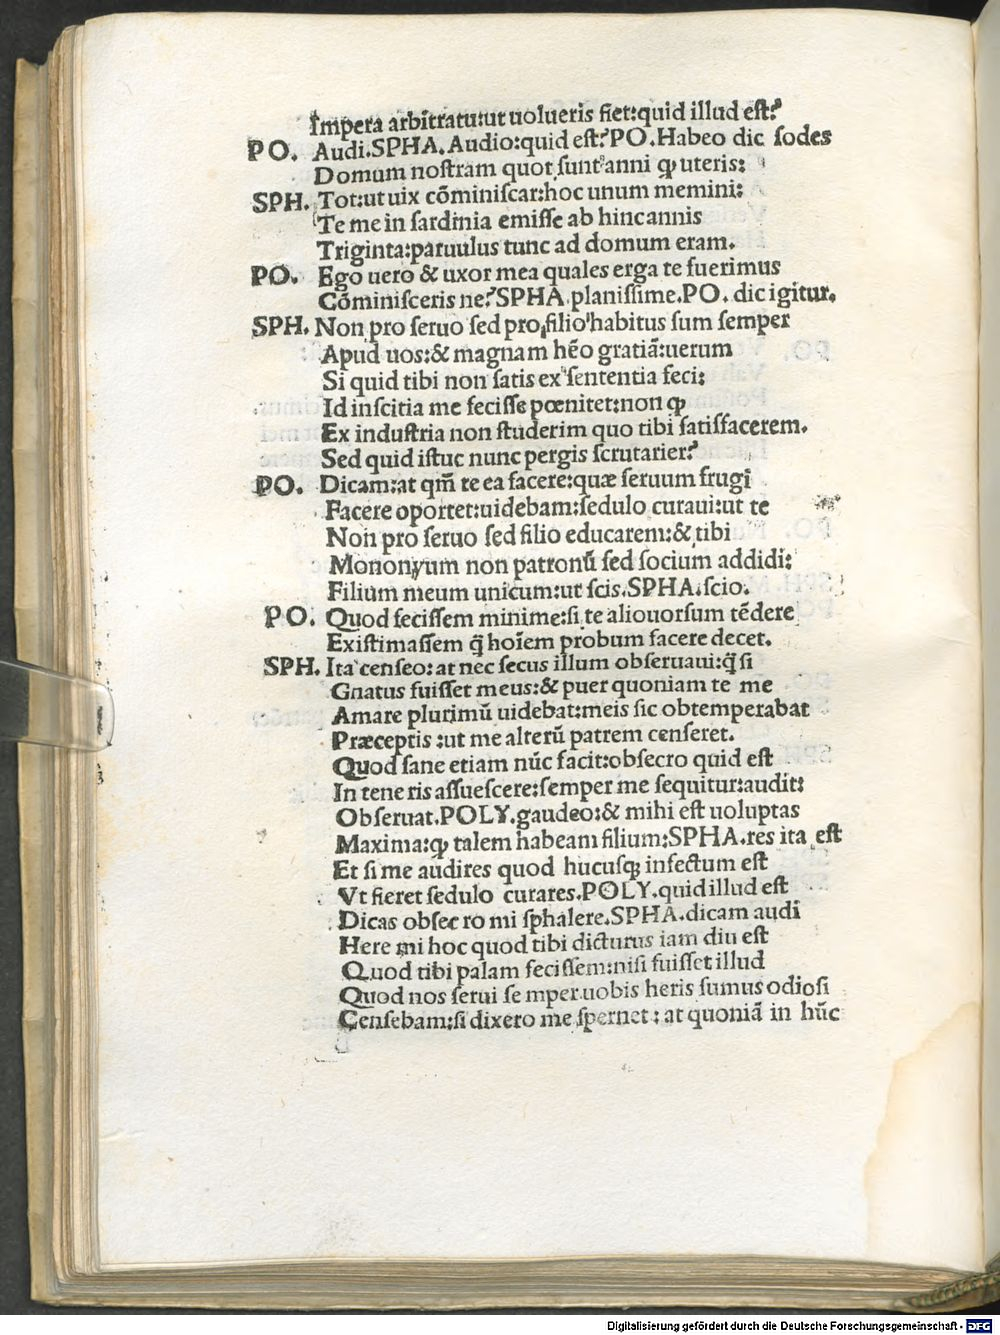 Impera arbitratu:ut uolueris fiet:quid illud eſt?
PO. Audi.SPHA.Audio:quid eſt?PO.Habeo dic ſodes
Domum noſtram quot ſunt anni ꝙ uteris:
SPH. Tot:ut uix cõminiſcar:hoc unum memini:
Te me in ſardinia emiſſe ab hinc annis
Triginta:paruulus tunc ad domum eram.
PO. Ego uero & uxor mea quales erga te fuerimus
Cõminiſceris ne?SPHA.planiſſime.PO. dic igitur.
SPH. Non pro ſeruo ſed pro filio habitus ſum ſemper
Apud uos:& magnam hẽo gratiã:uerum
Si quid tibi non ſatis ex ſententia feci:
Id inſcitia me feciſſe pœnitet:non ꝙ
Ex induſtria non ſtuderim quo tibi ſatiſfacerem.
Sed quid iſtuc nunc pergis ſcrutarier?
PO. Dicam:at qm̃ te ea facere:quæ ſeruum frugi
Facere oportet:uidebam:ſedulo curaui:ut te
Non pro ſeruo ſed filio educarem:& tibi
Mononyum non patronũ ſed ſocium addidi:
Filium meum unicum:ut ſcis.SPHA.ſcio.
PO. Quod feciſſem minime:ſi te aliouorſum tẽdere
Exiſtimaſſem q̃ hoĩem probum facere decet.
SPH. Ita cenſeo: at nec ſecus illum obſeruaui:q̃ ſi
Gnatus fuiſſet meus:& puer quoniam te me
Amare plurimũ uidebat:meis ſic obtemperabat
Præceptis :ut me alterũ patrem cenſeret.
Quod ſane etiam nũc facit:obſecro quid eſt
In tene ris aſſueſcere:ſemper me ſequitur:audit:
Obſeruat.POLY.gaudeo:& mihi eſt uoluptas
Maxima:ꝙ talem habeam filium:SPHA.res ita eſt
Et ſi me audires quod hucuſꝗ infectum eſt
Vt fieret ſedulo curares.POLY.quid illud eſt
Dicas obſec ro mi ſphalere.SPHA.dicam audi
Here mi hoc quod tibi dicturus iam diu eſt
Quod tibi palam feciſſem:niſi fuiſſet illud
Quod nos ſerui ſe mper uobis heris ſumus odioſi
Cenſebam:ſi dixero me ſpernet : at quoniã in hũc
Digitalisierung gefördert durch die Deutsche Forschungsgemeinschaft - DFG